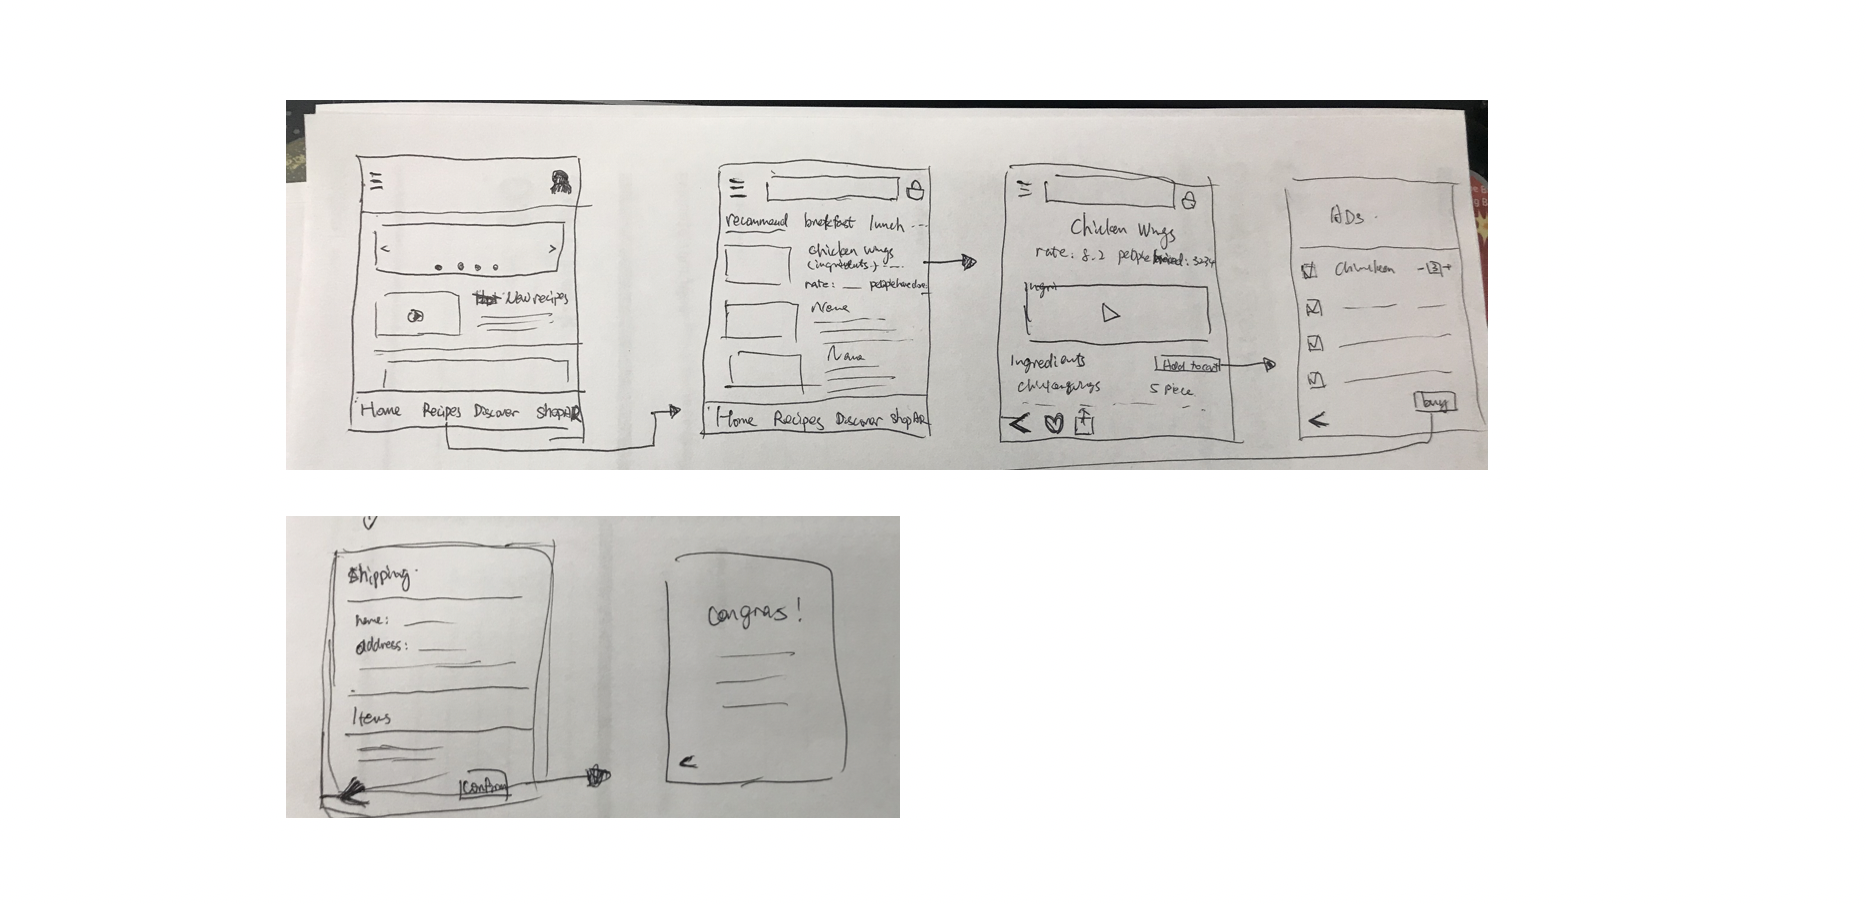 New recipes
Home Recipes Discover ShopAR
recommend breakfast lunch ...
Chicken Wings
(ingredients) ...
rate: people have done
Name
Name
Home Recipes Discover ShopAR
Chicken Wings
rate: 8.2 people : 3234
Ingredients Add to cart
5 piece
ADs.
- 3 +
buy
Shipping
name:
address:
Items
Confirm
congras!